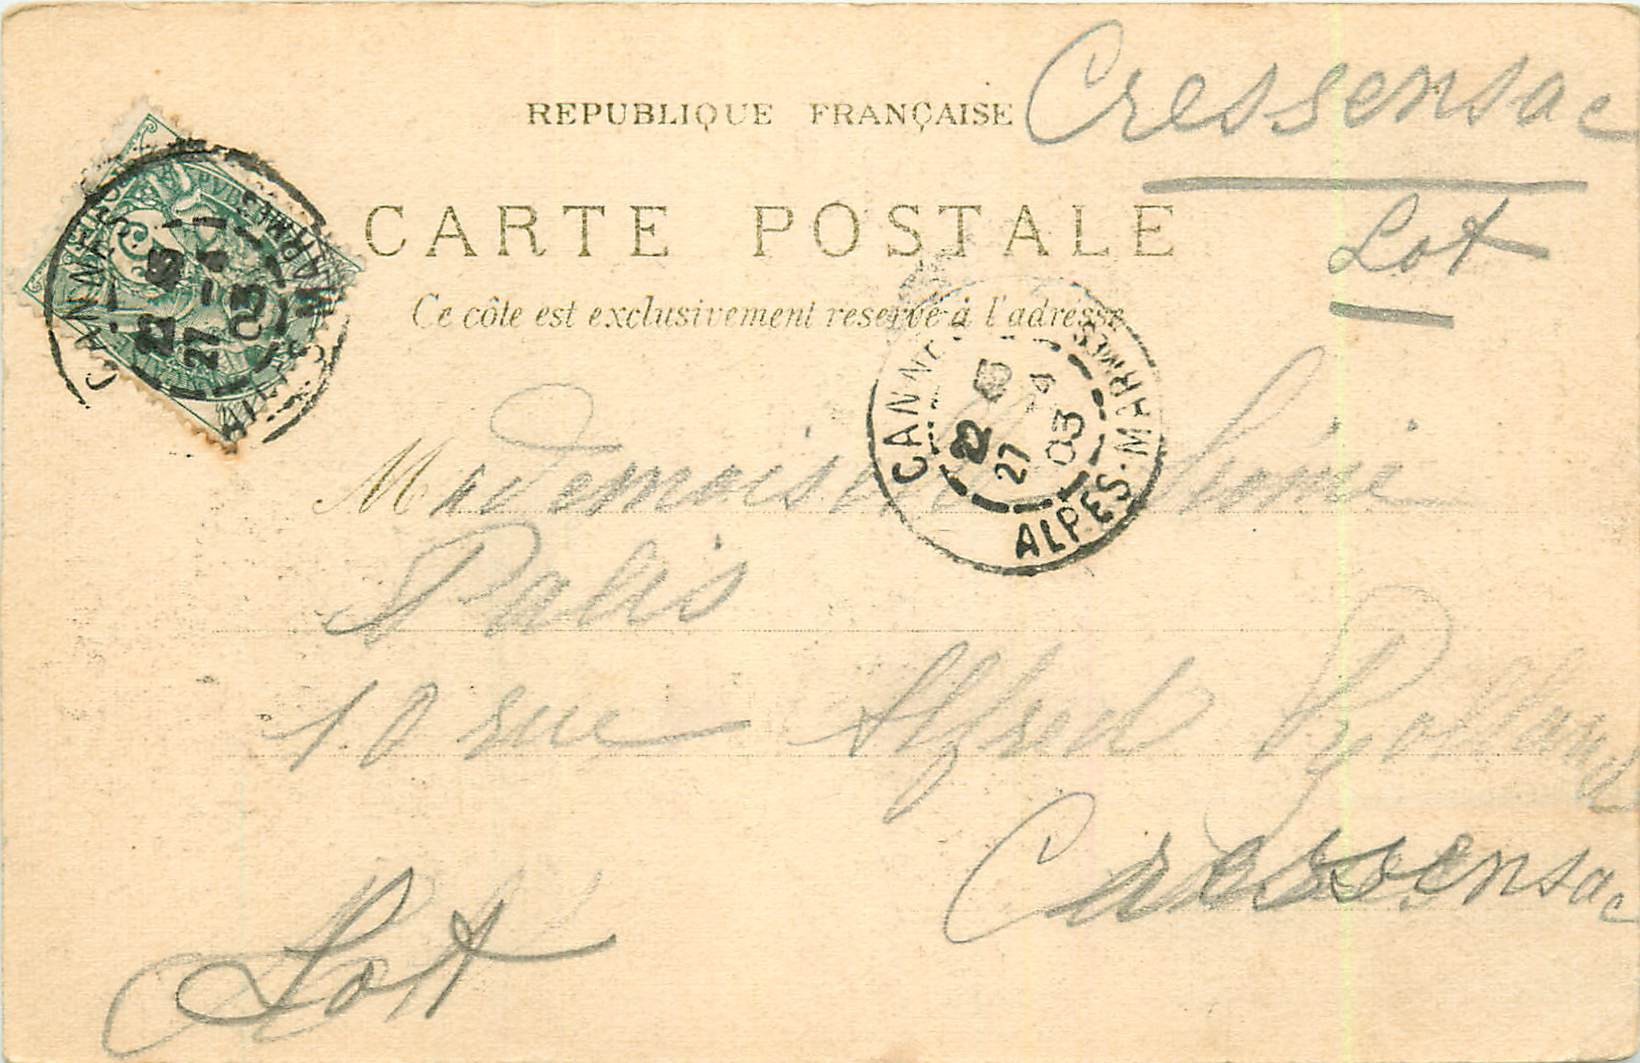 Cressensac
REPUBLIQUE FRANÇAISE
Lot
CARTE POSTALE
Ce côte est exclusivement reservé à l'adresse
CANNES
22 45
27 -4
03
ALPES-MARMES
CANNES
22 45
27 -4
03
ALPES-MARMES
Mademoiselle
Palis
10 rue Alfred Rolland
Cressensac
Lot